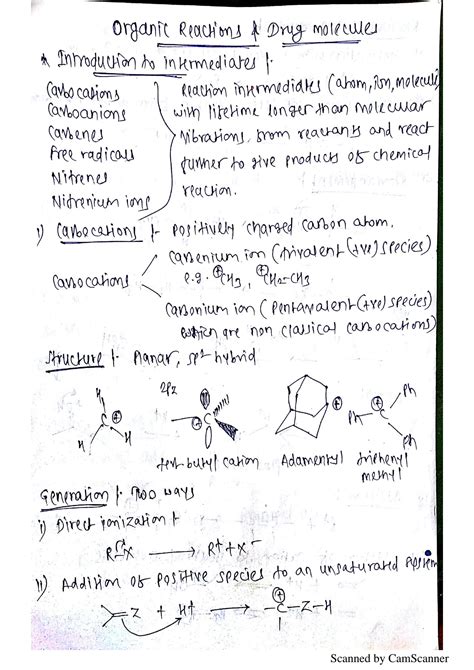 Organic Reactions & Drug molecules
* Introduction to intermediates :-
Carbocations
Carboanions
Carbenes
Free radicals
Nitrenes
Nitrenium ions
Reaction intermediates (atom, ion, molecule)
with lifetime longer than molecular
vibrations, from reactants and react
further to give products of chemical
reaction.
i) Carbocations :- positively charged carbon atom.
Carbocations
carbenium ion (trivalent (+ve) species)
e.g. ⊕CH3, ⊕CH2-CH3
carbonium ion (pentavalent (+ve) species)
which are non classical carbocations)
Structure :- Planar, sp2 hybrid
H
C ⊕
H H
2pz
⊕
C
⊕
Ph
Ph C ⊕
Ph
tert-butyl cation Adamentyl triphenyl
methyl
Generation :- Two ways
i) Direct ionization :-
R-X → R+ + X-
ii) Addition of positive species to an unsaturated system
=Z + H+ → -C-Z-H
⊕
Scanned by CamScanner